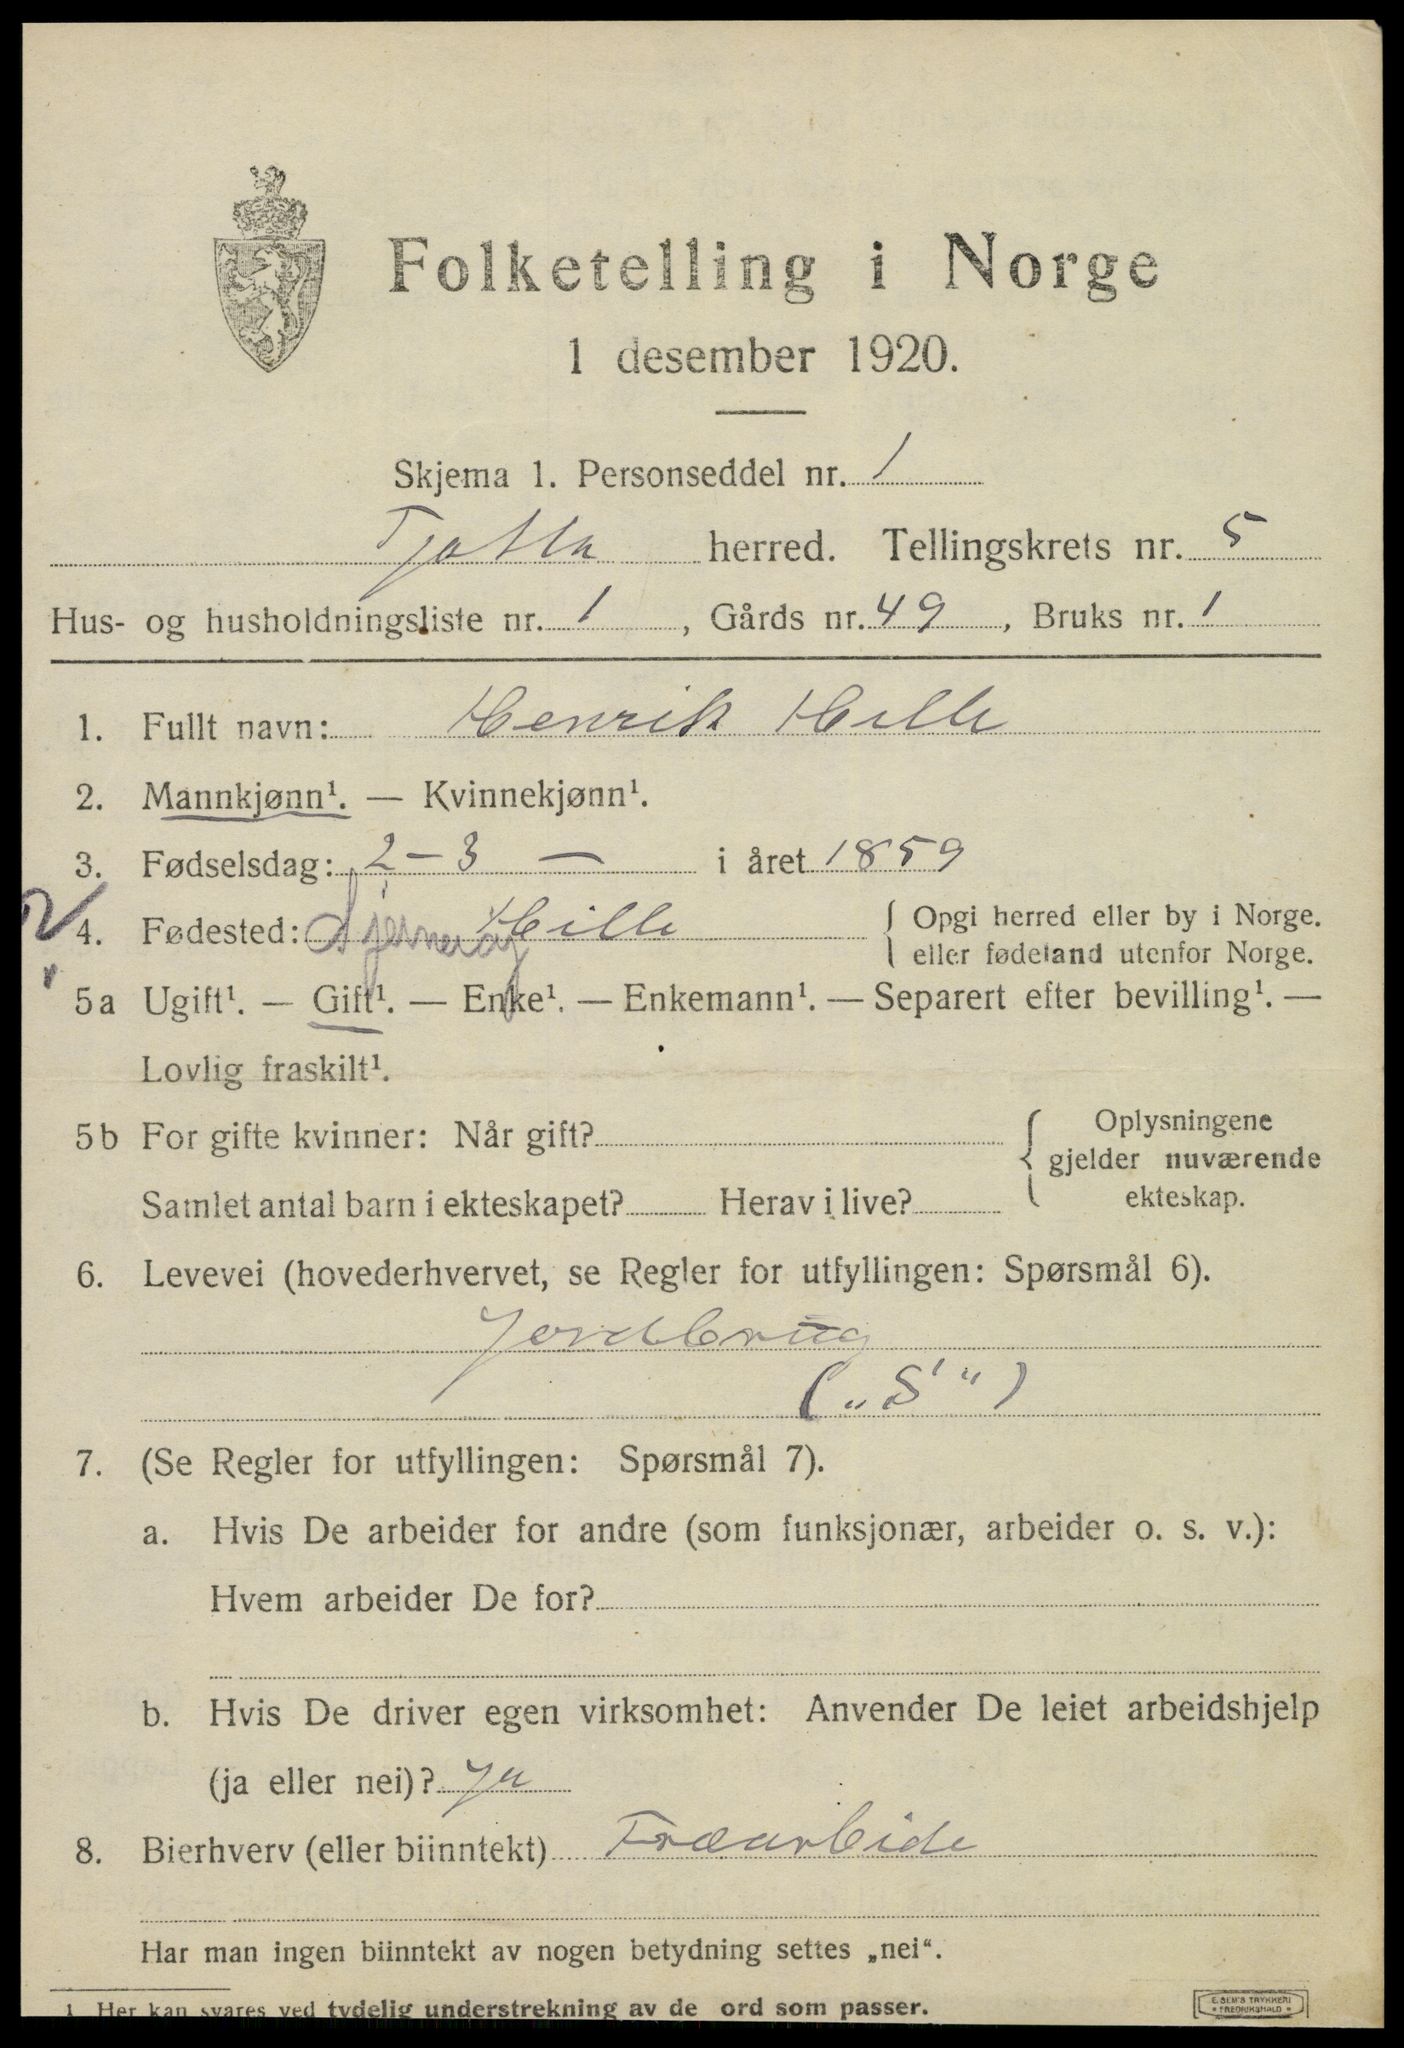 Folketelling i Norge
1 desember 1920.
Skjema 1. Personseddel nr. 1
Tjøtta herred. Tellingskrets nr. 5
Hus- og husholdningsliste nr. 1, Gårds nr. 49, Bruks nr. 1
1. Fullt navn: Henrik Hille
2. Mannkjønn¹. — Kvinnekjønn¹.
3. Fødselsdag: 2 – 3 — i året 1859
4. Fødested: Hille { Opgi herred eller by i Norge.
eller fødeland utenfor Norge.
5a Ugift¹. — Gift¹. — Enke¹. — Enkemann¹. — Separert efter bevilling¹. —
Lovlig fraskilt¹.
5b For gifte kvinner: Når gift? { Oplysningene
gjelder nuværende
Samlet antal barn i ekteskapet? Herav i live? ekteskap.
6. Levevei (hovederhvervet, se Regler for utfyllingen: Spørsmål 6).
Jordbrug
(„S“)
7. (Se Regler for utfyllingen: Spørsmål 7).
a. Hvis De arbeider for andre (som funksjonær, arbeider o. s. v.):
Hvem arbeider De for?
b. Hvis De driver egen virksomhet: Anvender De leiet arbeidshjelp
(ja eller nei)? Ja
8. Bierhverv (eller biinntekt) Træarbeide
Har man ingen biinntekt av nogen betydning settes „nei“.
1 Her kan svares ved tydelig understrekning av de ord som passer.
E. SEM'S TRYKKERI
• FREDRIKSHALD •